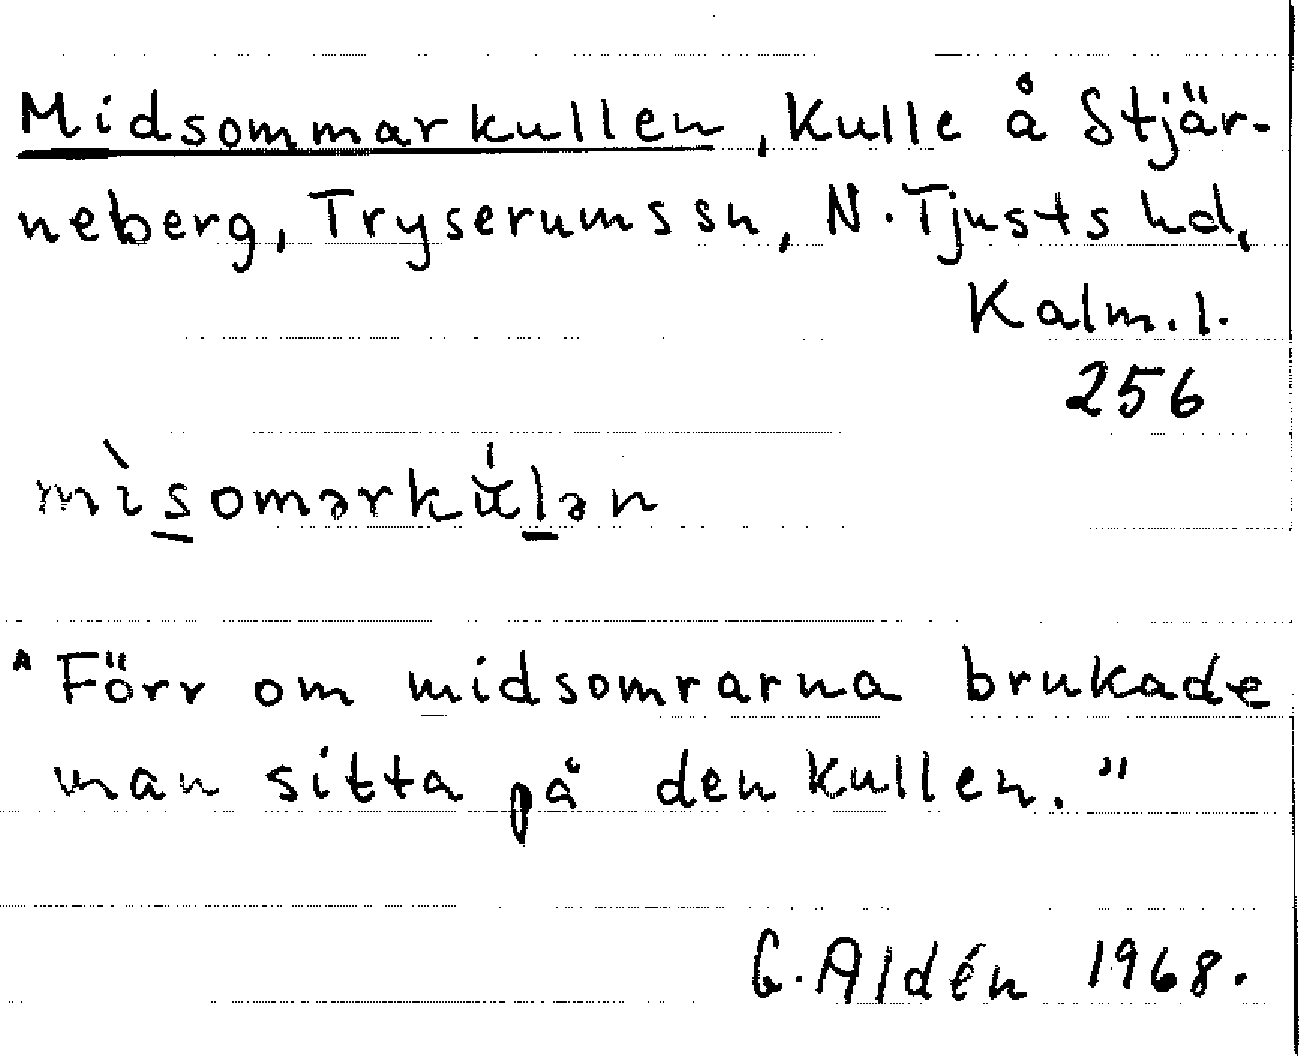 Midsommarkullen, Kulle å Stjär-
neberg, Tryserums sn, N. Tjusts hd,
Kalm. l.
256
mìsomərkŭ́lən
"Förr om midsomrarna brukade
man sitta på den kullen."
G. Aldén 1968.